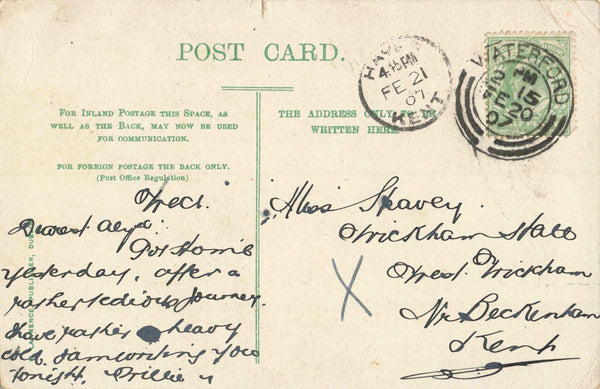 POST CARD.
FOR INLAND POSTAGE THIS SPACE, AS
WELL AS THE BACK, MAY NOW BE USED
FOR COMMUNICATION.
FOR FOREIGN POSTAGE THE BACK ONLY.
(Post Office Regulation)
THE ADDRESS ONLY TO BE
WRITTEN HERE.
4.15 PM
FE 21
07
KENT
WATERFORD
PM
15
FE 20
07
Wed.
Dearest
Got home
yesterday, after a
rather tedious journey.
Have rather heavy
cold. Am writing you
tonight. Willie
Miss Heavey.
Wickham Hall
West Wickham
Nr Beckenham
Kent
X
LAWRENCE, PUBLISHER, DUBLIN